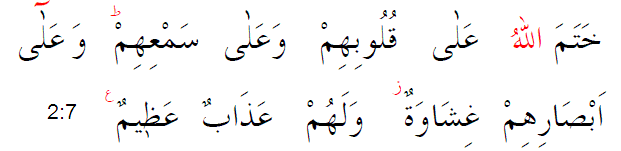 خَتَمَ اللّٰهُ عَلٰى قُلُوبِهِمْ وَعَلٰى سَمْعِهِمْ ؕ وَ عَلٰٓى
اَبْصَارِهِمْ غِشَاوَةٌ ز وَلَهُمْ عَذَابٌ عَظٖيمٌ ع 2:7